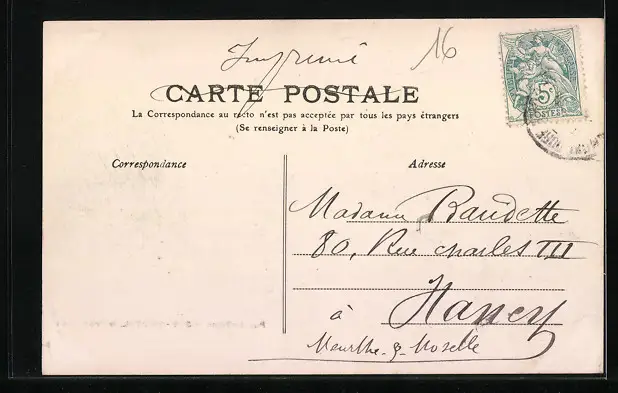 Imprimé 16
CARTE POSTALE
La Correspondance au recto n'est pas acceptée par tous les pays étrangers
(Se renseigner à la Poste)
5c
POSTES
Correspondance
Adresse
Madame Baudette
80, Rue Charles III
à Nancy
Meurthe-&-Moselle